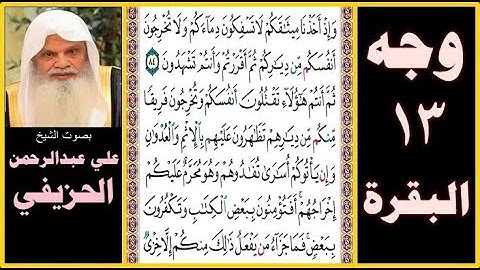 وجه
١٣
البقرة
وَإِذْ أَخَذْنَا مِيثَٰقَكُمْ لَا تَسْفِكُونَ دِمَآءَكُمْ وَلَا تُخْرِجُونَ
أَنفُسَكُم مِّن دِيَٰرِكُمْ ثُمَّ أَقْرَرْتُمْ وَأَنتُمْ تَشْهَدُونَ ٨٤
ثُمَّ أَنتُمْ هَٰٓؤُلَآءِ تَقْتُلُونَ أَنفُسَكُمْ وَتُخْرِجُونَ فَرِيقًا
مِّنكُم مِّن دِيَٰرِهِمْ تَظَٰهَرُونَ عَلَيْهِم بِٱلْإِثْمِ وَٱلْعُدْوَٰنِ
وَإِن يَأْتُوكُمْ أُسَٰرَىٰ تُفَٰدُوهُمْ وَهُوَ مُحَرَّمٌ عَلَيْكُمْ
إِخْرَاجُهُمْ أَفَتُؤْمِنُونَ بِبَعْضِ ٱلْكِتَٰبِ وَتَكْفُرُونَ
بِبَعْضٍ فَمَا جَزَآءُ مَن يَفْعَلُ ذَٰلِكَ مِنكُمْ إِلَّا خِزْىٌ
بصوت الشيخ
علي عبدالرحمن
الحزيفي